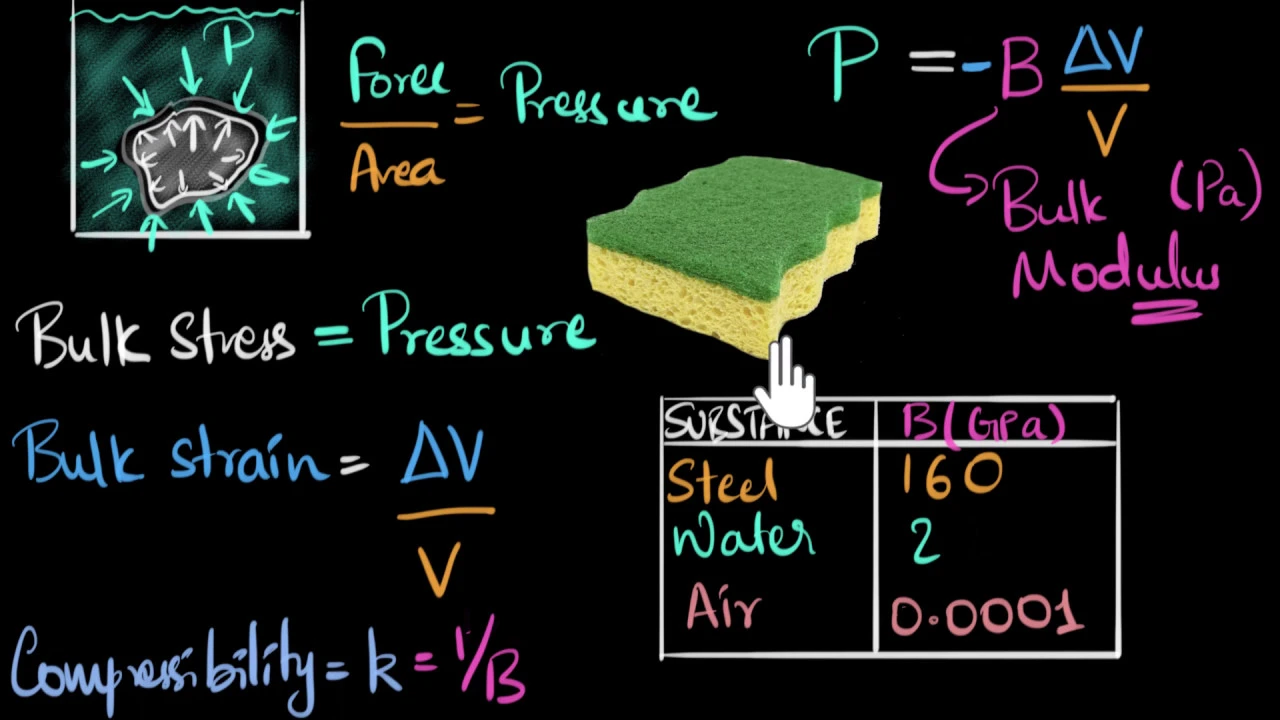 P
Force
Area
= Pressure
P = -B ΔV
V
Bulk (Pa)
Modulus
Bulk Stress = Pressure
Bulk strain = ΔV
V
Compressibility = k = 1/B
SUBSTANCE B(GPa)
Steel 160
Water 2
Air 0.0001